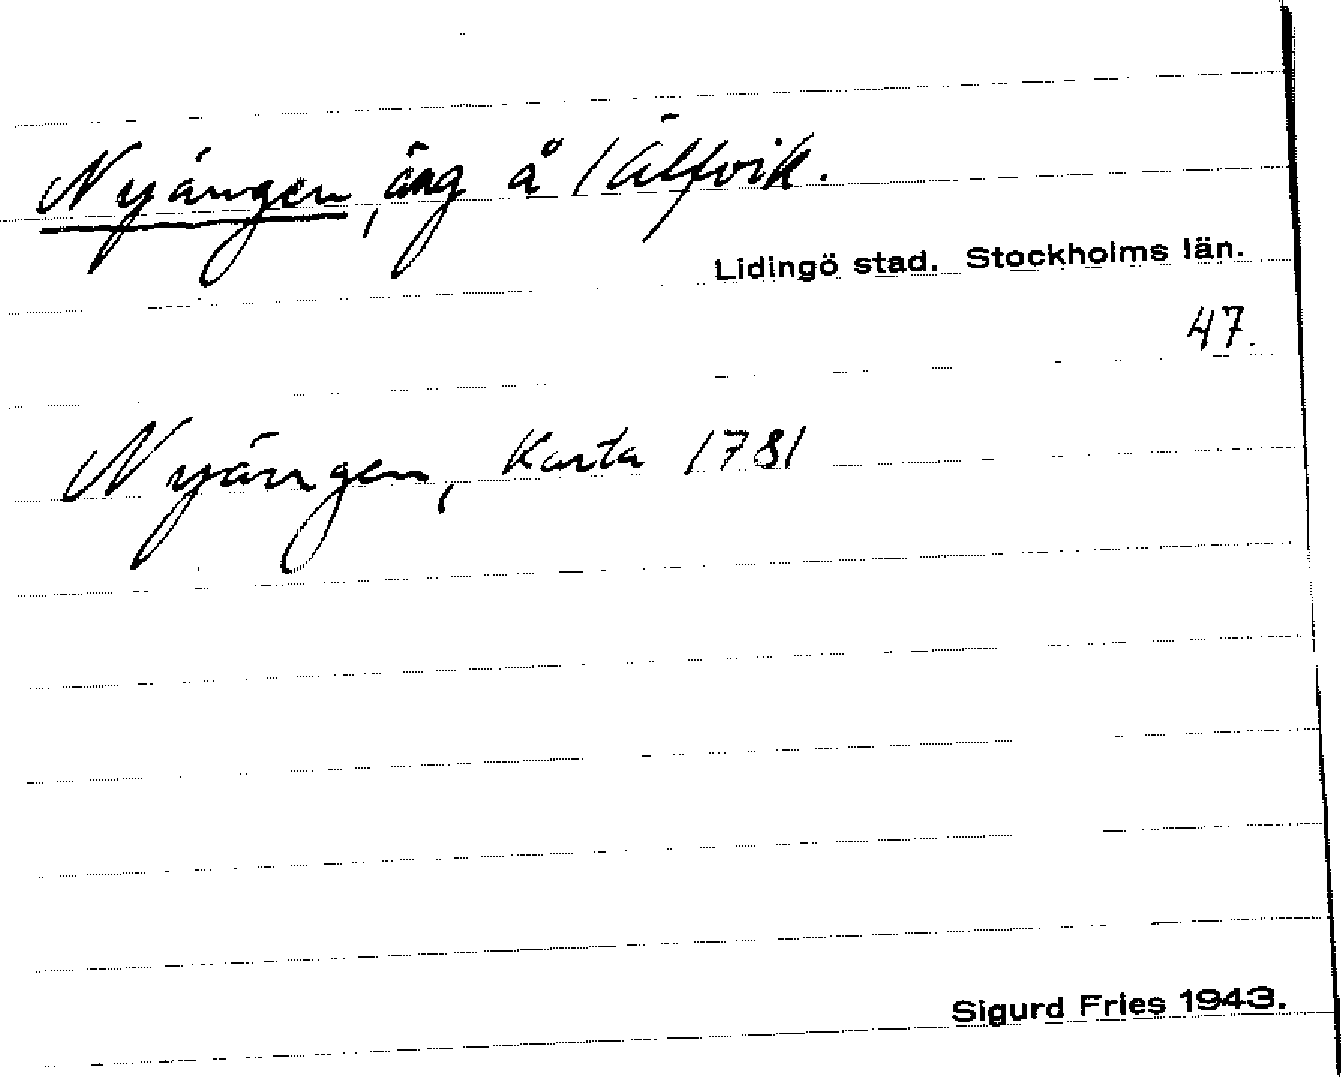 Nyängen, äng å Källvik.
Lidingö stad. Stockholms län.
47.
Nyängen, Karta 1781
Sigurd Fries 1943.